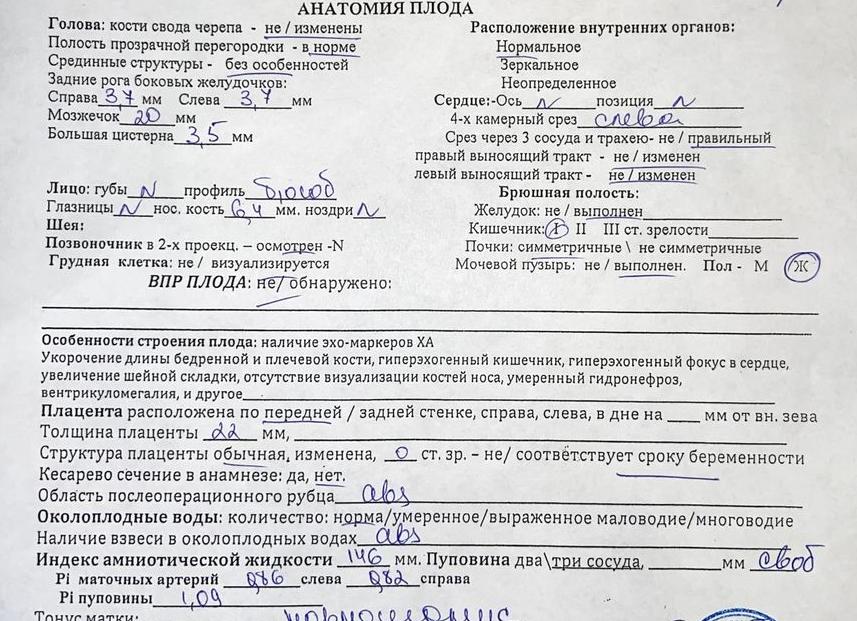 АНАТОМИЯ ПЛОДА
Голова: кости свода черепа - не / изменены
Полость прозрачной перегородки - в норме
Срединные структуры - без особенностей
Задние рога боковых желудочков:
Справа 3,7 мм Слева 3,7 мм
Мозжечок 20 мм
Большая цистерна 3,5 мм
Лицо: губы N профиль б/особ
Глазницы N нос. кость 6,4 мм. ноздри N
Шея:
Позвоночник в 2-х проекц. – осмотрен -N
Грудная клетка: не / визуализируется
Расположение внутренних органов:
Нормальное
Зеркальное
Неопределенное
Сердце:-Ось N позиция N
4-х камерный срез слева
Срез через 3 сосуда и трахею- не / правильный
правый выносящий тракт - не / изменен
левый выносящий тракт - не / изменен
Брюшная полость:
Желудок: не / выполнен
Кишечник: I II III ст. зрелости
Почки: симметричные \ не симметричные
Мочевой пузырь: не / выполнен. Пол - М Ж
ВПР ПЛОДА: не/ обнаружено:
Особенности строения плода: наличие эхо-маркеров ХА
Укорочение длины бедренной и плечевой кости, гиперэхогенный кишечник, гиперэхогенный фокус в сердце,
увеличение шейной складки, отсутствие визуализации костей носа, умеренный гидронефроз,
вентрикуломегалия, и другое
Плацента расположена по передней / задней стенке, справа, слева, в дне на ____ мм от вн. зева
Толщина плаценты 22 мм,
Структура плаценты обычная, изменена, 0 ст. зр. – не/ соответствует сроку беременности
Кесарево сечение в анамнезе: да, нет.
Область послеоперационного рубца abs
Околоплодные воды: количество: норма/умеренное/выраженное маловодие/многоводие
Наличие взвеси в околоплодных водах abs
Индекс амниотической жидкости 146 мм. Пуповина два\три сосуда, ____ мм своб
Pi маточных артерий 0,86 слева 0,82 справа
Pi пуповины 1,09
Тонус матки: нормотонус